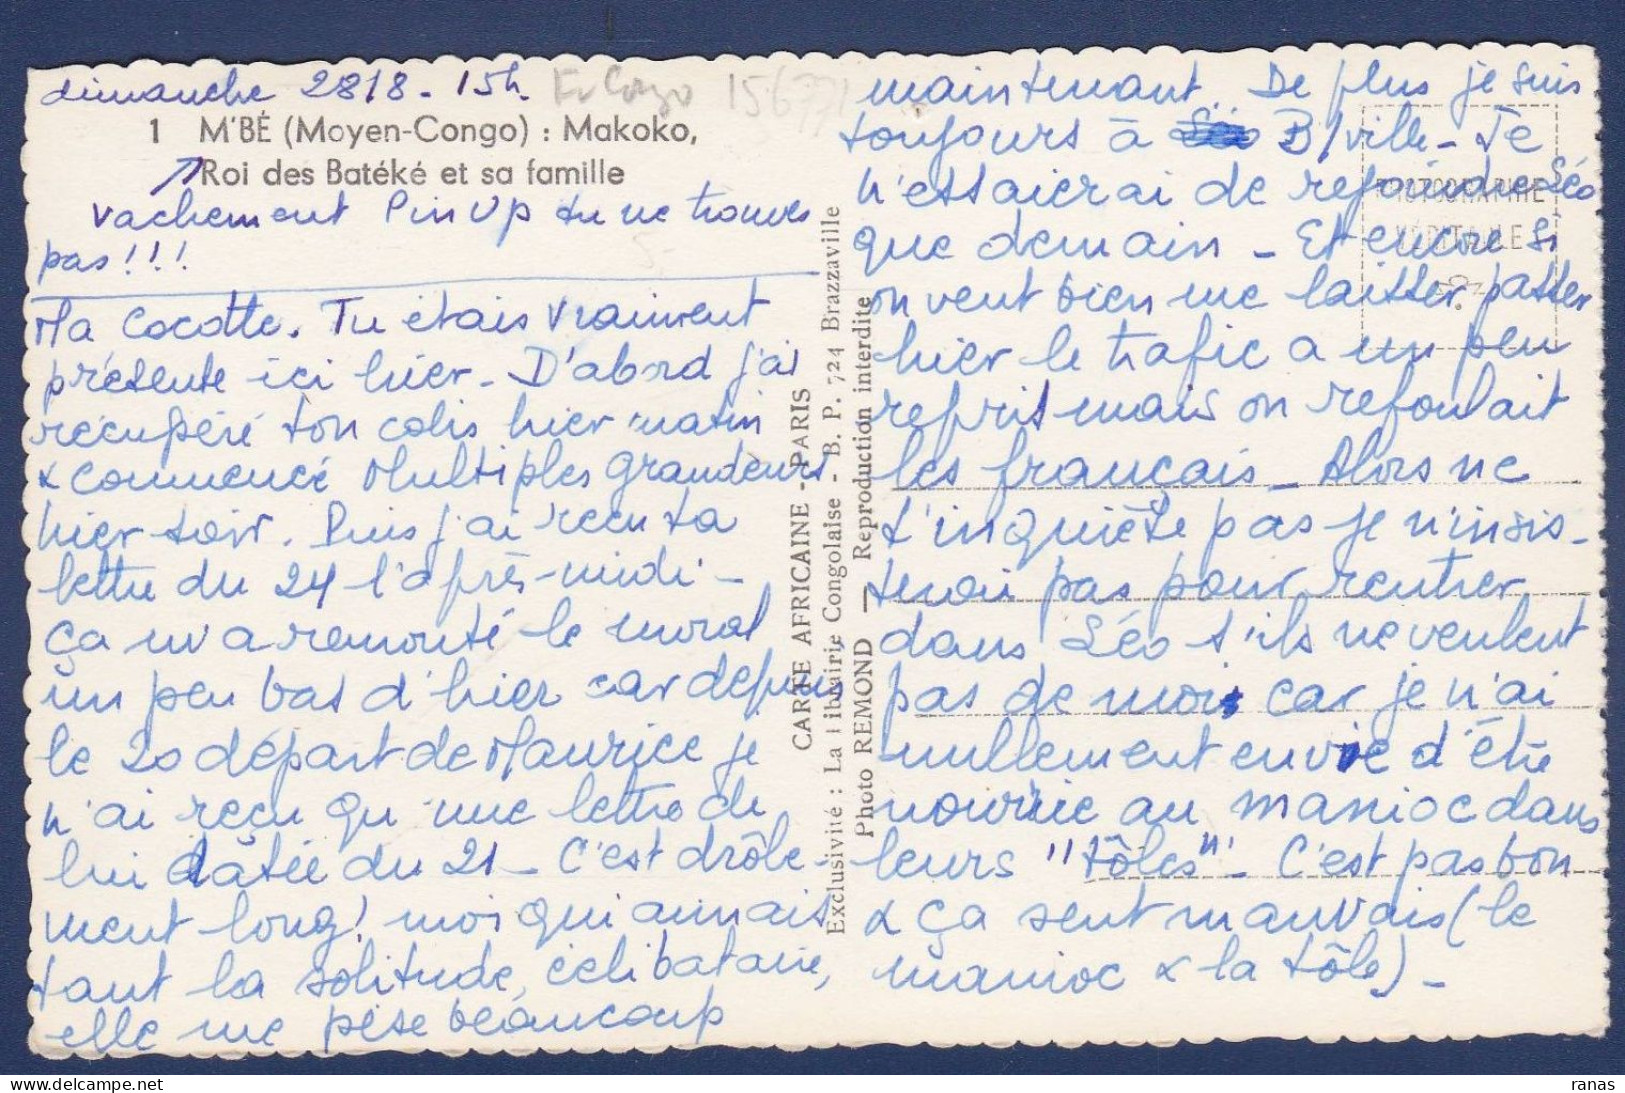 dimanche 28/8 - 15h. 156771
1 M'BÉ (Moyen-Congo) : Makoko,
Roi des Batéké et sa famille
vachement Pin Up tu ne trouves
pas !!!
Ma Cocotte. Tu étais vraiment
présente ici hier - D'abord j'ai
récupéré ton colis hier matin
& commencé Multiples grandeurs
hier soir. Puis j'ai reçu ta
lettre du 24 l'après-midi -
ça m'a remonté le moral
un peu bas d'hier car depuis
le 20 départ de Maurice je
n'ai reçu qu'une lettre de
lui datée du 21 - C'est drôle-
ment long! moi qui aimais
tant la solitude, célibataire,
elle me pèse beaucoup
CARTE AFRICAINE - PARIS
Exclusivité : La Librairie Congolaise - B. P. 724 Brazzaville
Photo REMOND — Reproduction interdite
PHOTOGRAPHIE
VÉRITABLE
maintenant.. De plus je suis
toujours à B/ville - Je
n'essaierai de rejoindre Léo
que demain - Et encore si
on veut bien me laisser passer
hier le trafic a un peu
repris mais on refoulait
les français - Alors ne
t'inquiète pas je n'insis-
terai pas pour rentrer
dans Léo s'ils ne veulent
pas de moi car je n'ai
nullement envie d'être
nourrie au manioc dans
leurs "tôles" - C'est pas bon
& ça sent mauvais (le
manioc & la tôle) -
ranas